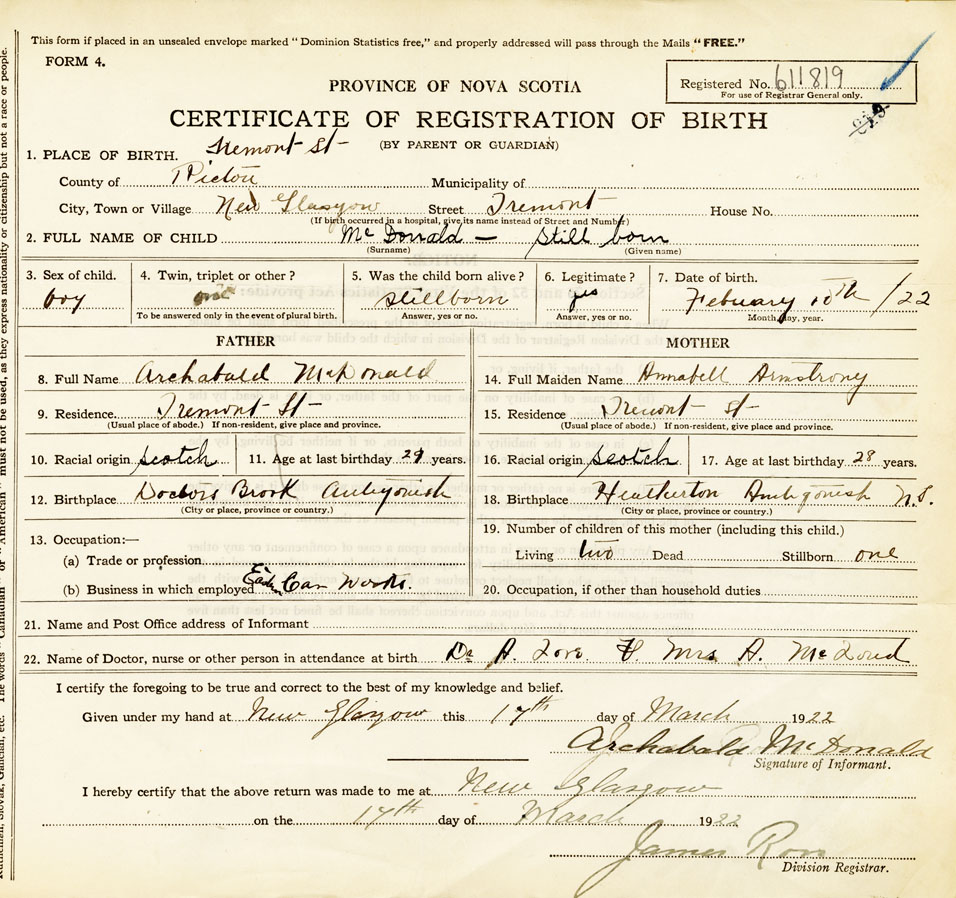 This form if placed in an unsealed envelope marked "Dominion Statistics free," and properly addressed will pass through the Mails "FREE."
FORM 4.
Registered No. 611819
For use of Registrar General only.
PROVINCE OF NOVA SCOTIA
CERTIFICATE OF REGISTRATION OF BIRTH
(BY PARENT OR GUARDIAN)
1. PLACE OF BIRTH. Tremont St
County of Pictou Municipality of
City, Town or Village New Glasgow Street Tremont House No.
(If birth occurred in a hospital, give its name instead of Street and Number)
2. FULL NAME OF CHILD Mc Donald — Still born
(Surname) (Given name)
3. Sex of child. 4. Twin, triplet or other? 5. Was the child born alive? 6. Legitimate? 7. Date of birth.
boy one stillborn yes February 10th /22
To be answered only in the event of plural birth. Answer, yes or no. Answer, yes or no. Month, day, year.
FATHER MOTHER
8. Full Name Archabald McDonald 14. Full Maiden Name Annabell Armstrong
9. Residence. Tremont St 15. Residence Tremont St
(Usual place of abode.) If non-resident, give place and province. (Usual place of abode.) If non-resident, give place and province.
10. Racial origin scotch 11. Age at last birthday years. 16. Racial origin scotch 17. Age at last birthday 28 years.
12. Birthplace Doctors Brook Antigonish 18. Birthplace Heatherton Antigonish N.S.
(City or place, province or country.) (City or place, province or country.)
13. Occupation:— 19. Number of children of this mother (including this child.)
(a) Trade or profession Living two Dead Stillborn one
(b) Business in which employed Car Works. 20. Occupation, if other than household duties
21. Name and Post Office address of Informant
22. Name of Doctor, nurse or other person in attendance at birth Dr A. Mrs A. Mc
I certify the foregoing to be true and correct to the best of my knowledge and belief.
Given under my hand at New Glasgow this 17th day of March 1922
Archabald McDonald
Signature of Informant.
I hereby certify that the above return was made to me at New Glasgow
on the 17th day of March 1922
James Ross
Division Registrar.